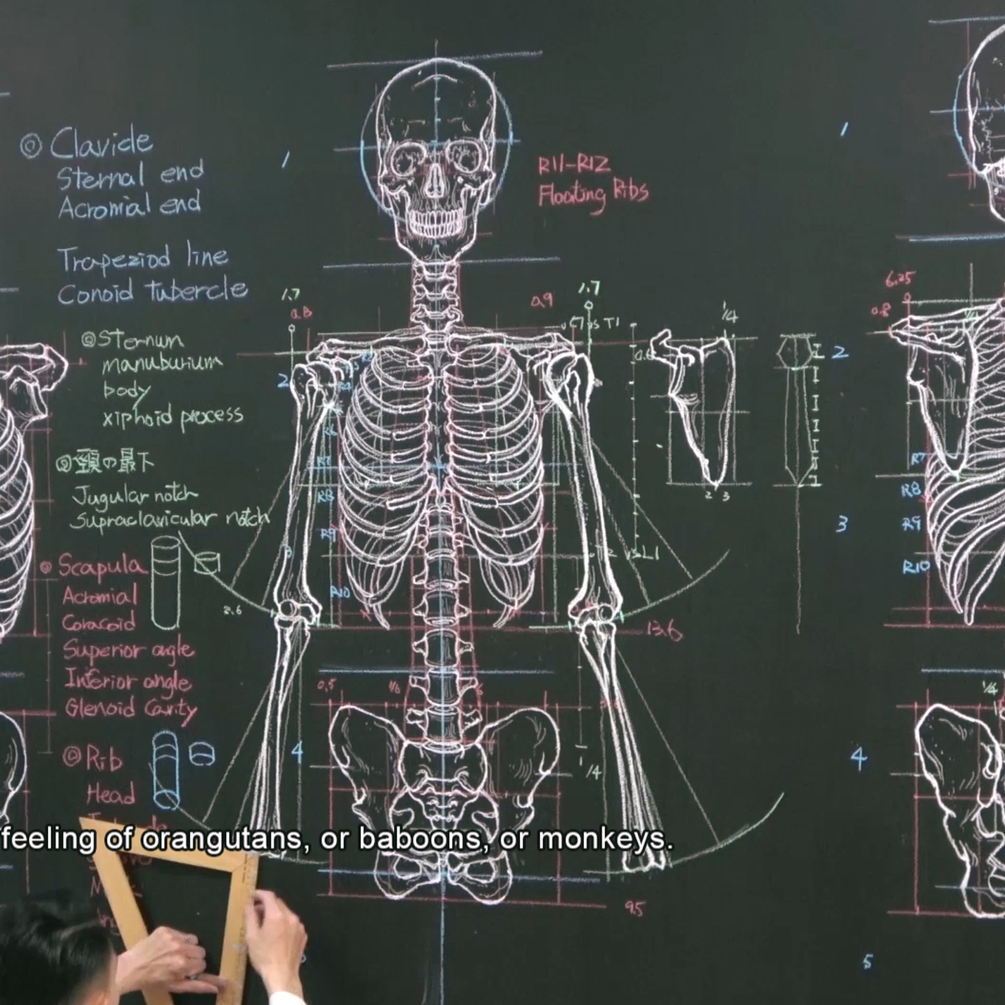 ◎ Clavicle
Sternal end
Acromial end
Trapeziod line
Conoid tubercle
◎Sternum
manuburium
body
xiphoid process
の最下
Jugular notch
Supraclavicular notch
Scapula
Acromial
Coracoid
Superior angle
Inferior angle
Glenoid Cavity
◎Rib
Head
2.6
1
R11-R12
Floating Ribs
1.7
0.8
0.9
1.7
C7 T1
1/4
2
2 3
R7
R8
R9
R10
L1
13.6
0.5
1/6
4
1/4
9.5
1
6.25
0.8
2
R7
R8
R9
R10
3
1/4
4
5
feeling of orangutans, or baboons, or monkeys.